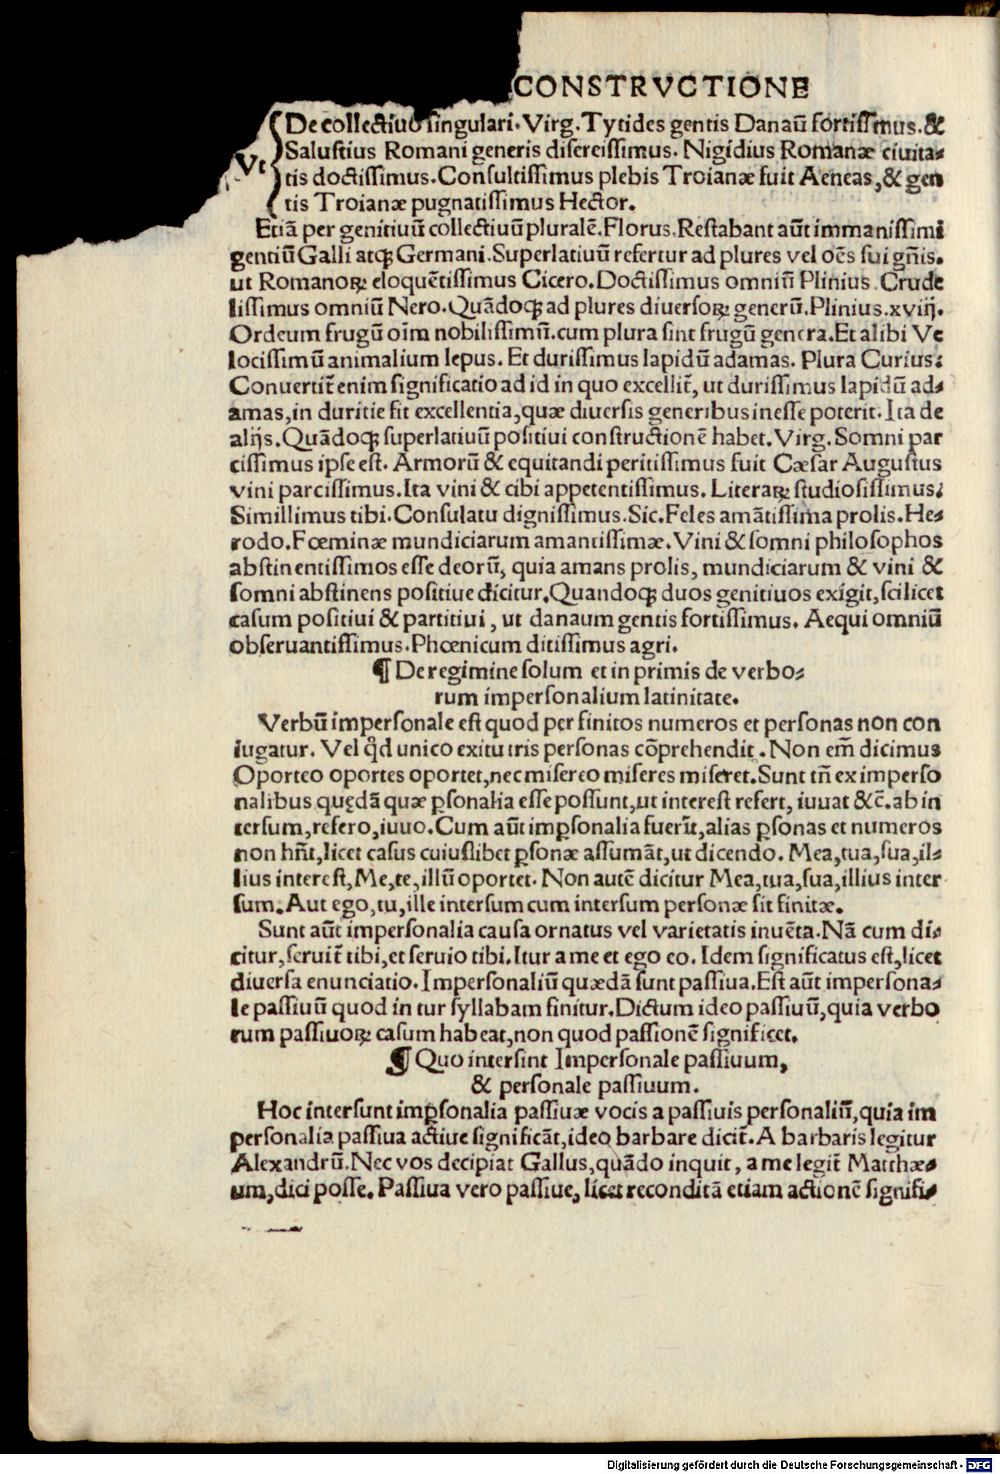 CONSTRVCTIONE
De collectiuo singulari. Virg. Tytides gentis Danaū fortissimus. &
Salustius Romani generis disereissimus. Nigidius Romanæ ciuita⸗
Vt tis doctissimus. Consultissimus plebis Troianæ fuit Aeneas, & gen
tis Troianæ pugnatissimus Hector.
Etiā per genitiuū collectiuū pluralē. Florus. Restabant aūt immanissimi
gentiū Galli atqꝫ Germani. Superlatiuū refertur ad plures vel oēs sui gn̄is.
ut Romanoꝝ eloquētissimus Cicero. Doctissimus omniū Plinius. Crude
lissimus omniū Nero. Quādoqꝫ ad plures diuersoꝝ generū. Plinius. xviij.
Ordeum frugū oīm nobilissimū. cum plura sint frugū genera. Et alibi Ve
locissimū animalium lepus. Et durissimus lapidū adamas. Plura Curius.
Conuertit̄ enim significatio ad id in quo excellit̄, ut durissimus lapidū ad⸗
amas, in duritie fit excellentia, quæ diuersis generibus inesse poterit. Ita de
alijs. Quādoqꝫ superlatiuū positiui constructionē habet. Virg. Somni par
cissimus ipse est. Armorū & equitandi peritissimus fuit Cæsar Augustus
vini parcissimus. Ita vini & cibi appetentissimus. Literaꝝ studiosissimus.
Simillimus tibi. Consulatu dignissimus. Sic. Feles amātissima prolis. He⸗
rodo. Fœminæ mundiciarum amantissimæ. Vini & somni philosophos
abstinentissimos esse deorū, quia amans prolis, mundiciarum & vini &
somni abstinens positiue dicitur. Quandoqꝫ duos genitiuos exigit, scilicet
casum positiui & partitiui, ut danaum gentis fortissimus. Aequi omniū
obseruantissimus. Phœnicum ditissimus agri.
¶ De regimine solum et in primis de verbo⸗
rum impersonalium latinitate.
Verbū impersonale est quod per finitos numeros et personas non con
iugatur. Vel qd̄ unico exitu tris personas cōprehendit. Non em̄ dicimus
Oporteo oportes oportet, nec misereo miseres miseret. Sunt tn̄ ex imperso
nalibus quędā quæ ꝑsonalia esse possunt, ut interest refert, iuuat &c̄. ab in
tersum, refero, iuuo. Cum aūt imꝑsonalia fuerīt, alias ꝑsonas et numeros
non hn̄t, licet casus cuiuslibet ꝑsonæ assumāt, ut dicendo. Mea, tua, sua, il⸗
lius interest, Me, te, illū oportet. Non autē dicitur Mea, tua, sua, illius inter
sum. Aut ego, tu, ille intersum cum intersum personæ sit finitæ.
Sunt aūt impersonalia causa ornatus vel varietatis inuēta. Nā cum di⸗
citur, seruit̄ tibi, et seruio tibi. Itur a me et ego eo. Idem significatus est, licet
diuersa enunciatio. Impersonaliū quædā sunt passiua. Est aūt impersona⸗
le passiuū quod in tur syllabam finitur. Dictum ideo passiuū, quia verbo
rum passiuoꝝ casum habeat, non quod passionē significet.
¶ Quo intersint Impersonale passiuum,
& personale passiuum.
Hoc intersunt imꝑsonalia passiuæ vocis a passiuis personaliū, quia im
personalia passiua actiue significāt, ideo barbare dicit̄. A barbaris legitur
Alexandrū. Nec vos decipiat Gallus, quādo inquit, a me legit̄ Matthæ⸗
um, dici posse. Passiua vero passiue, licet reconditā etiam actionē signifi⸗
Digitalisierung gefördert durch die Deutsche Forschungsgemeinschaft - DFG